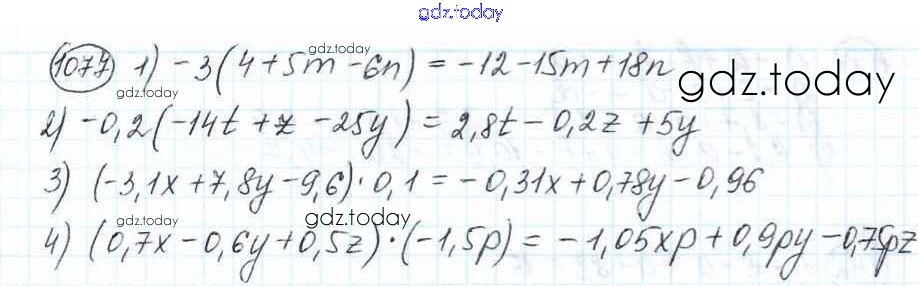 gdz.today
1077 1) -3(4+5m-6n) = -12-15m+18n
gdz.today
gdz.today
gdz.today
2) -0,2(-14t+z-25y) = 2,8t-0,2z+5y
3) (-3,1x+7,8y-9,6)·0,1 = -0,31x+0,78y-0,96
gdz.today
gdz.today
4) (0,7x-0,6y+0,5z)·(-1,5p) = -1,05xp+0,9py-0,75pz